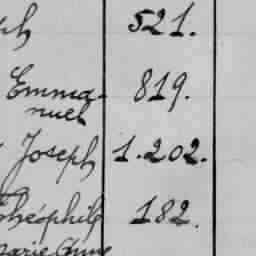 ph 521.
Emma-
nuel 819.
Joseph 1.202.
Théophile 182.
Marie Anne